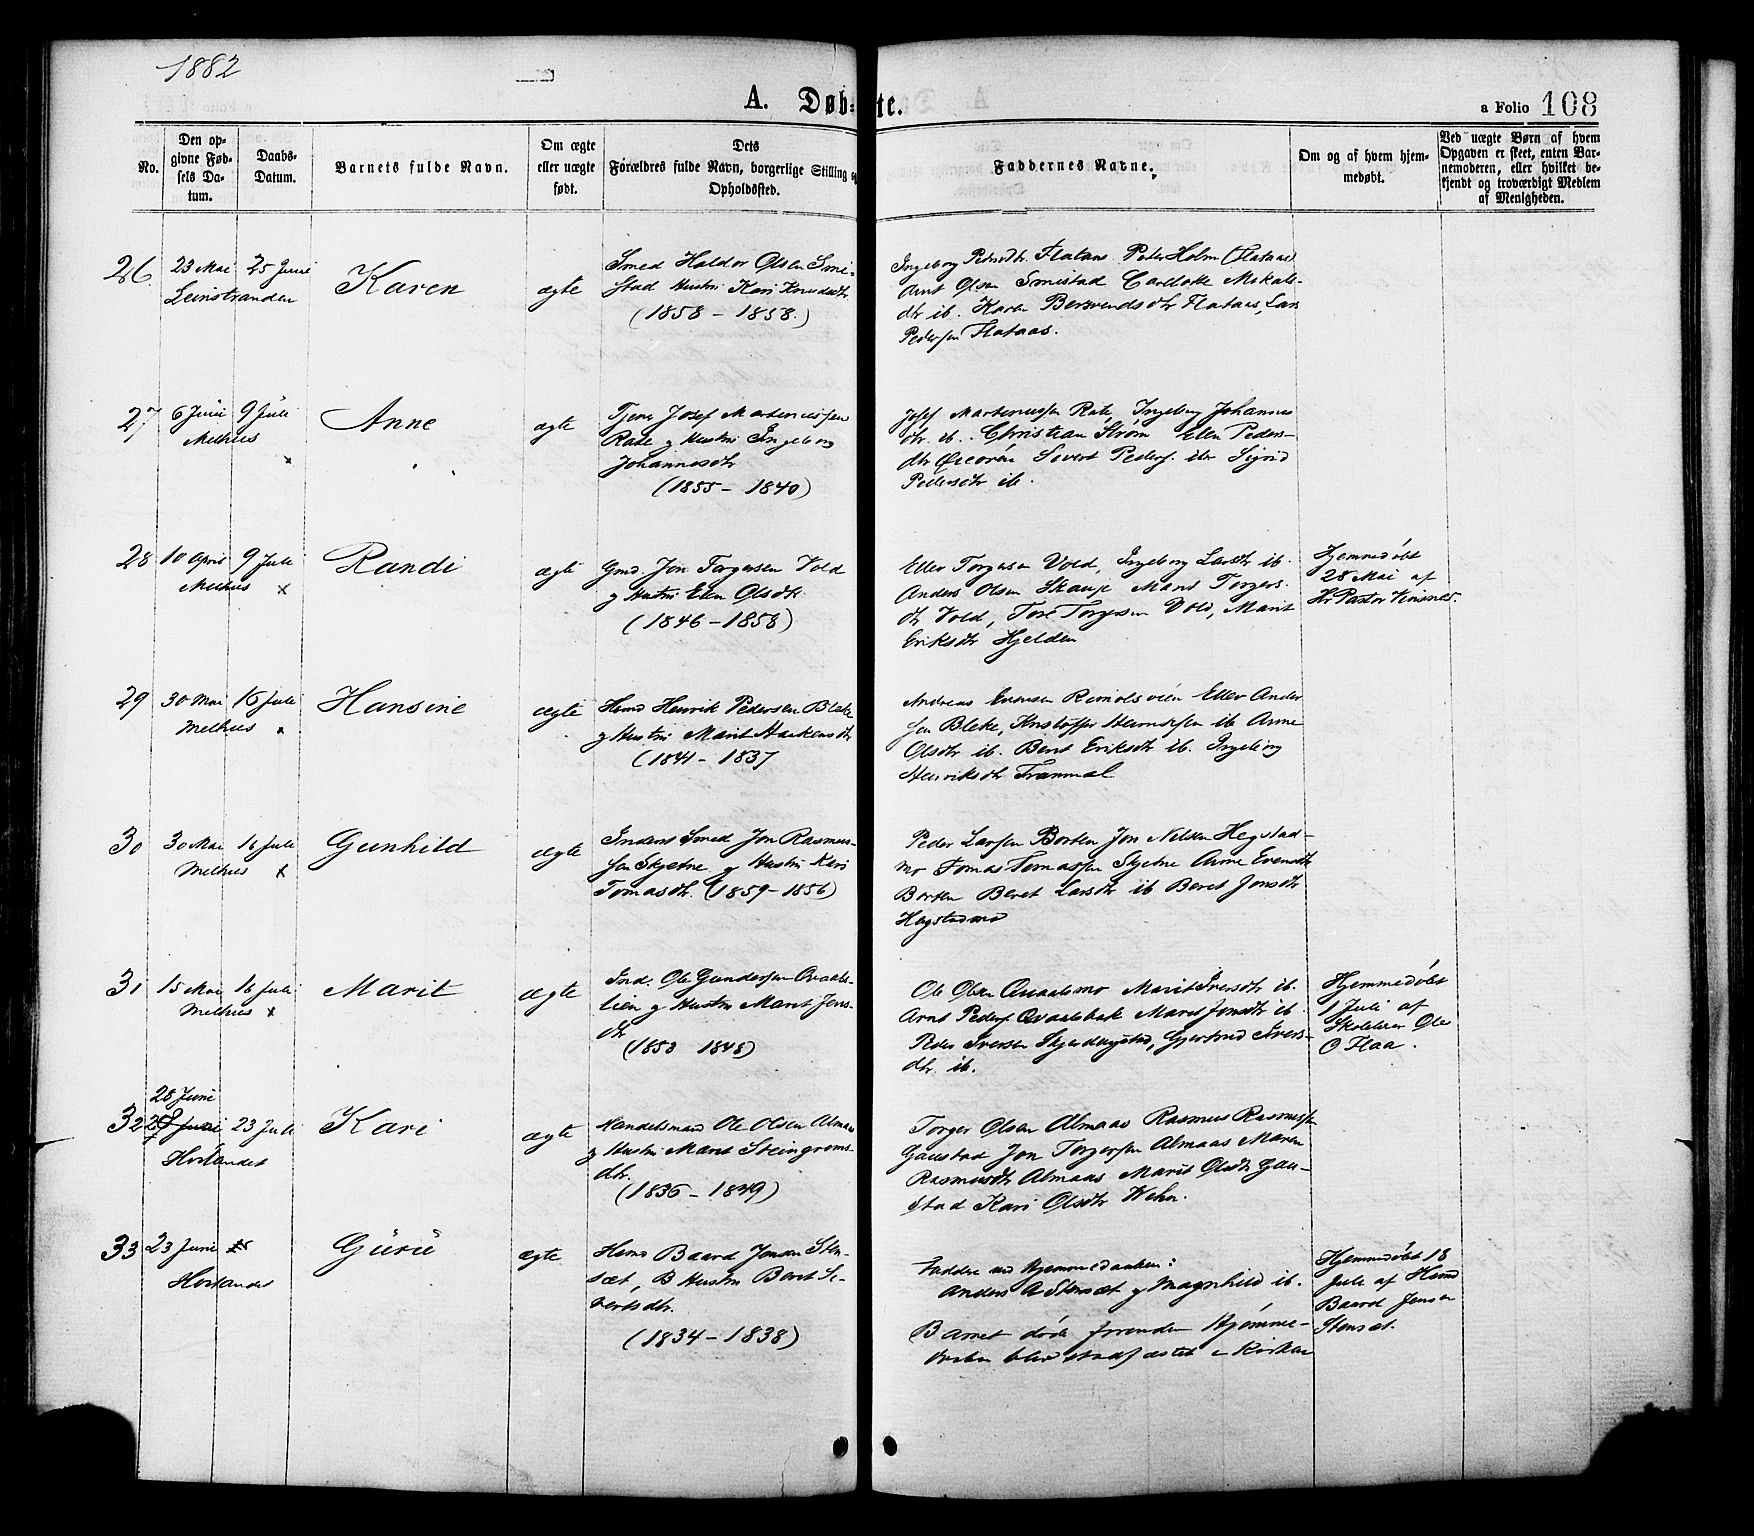 1882
A. Døb-
te.
a Folio 108
No.
Den op-
givne Fød-
sels Da-
tum.
Daabs-
Datum.
Barnets fulde Navn.
Om ægte
eller uægte
født.
Dets
Forældres fulde Navn, borgerlige Stilling og
Opholdssted.
Faddernes Navne.
Om og af hvem hjem-
medøbt.
Ved uægte Børn af hvem
Opgaven er skeet, enten Bar-
nemoderen, eller hvilket be-
kjendt og troværdigt Medlem
af Menigheden.
26 23 Mai 25 Juni
Leinstranden
Karen
ægte
Smed Haldor Olsen Smi-
stad Hustru Kari Knudsdtr
(1858 - 1858.)
Ingeborg Flataas Peter Holm (Flataas)
Arnt Olsen Smistad Carlotte Mikals-
dtr ib. Karen Bersvendsdtr Flataas, Lars
Pedersen Flataas.
27 6 Juni 9 Juli
Melhus
Anne
ægte
Tjener Josef Martenussen
Rate g Hustru Ingeborg
Johannesdtr
(1855 - 1840)
Josef Martenussen Rate, Ingeborg Johannes
dtr. ib. Christian Strøm Ellen Peders-
dtr Sivert Peders. ib Sigrid
Pedersdtr ib.
28 10 April 9 Juli
Melhus x
Randi
ægte
Gmd. Jon Torgersen Vold
g Hustru Elen Olsdtr
(1846 - 1858)
Ellev Torgersen Vold, Ingeborg Larsdtr ib.
Anders Olsen Skauge Marit Torgers
dtr Vold, Tore Torgersen Vold, Marit
Eriksdtr Hjelden
Hjemmedøbt
28 Mai af
Hr Pastor
29 30 Mai 16 Juli
Melhus x
Hansine
ægte
Hmd Henrik Pedersen Bleke
g Hustru Marit Haakensdtr
(1841 - 1837
Andreas Evensen Ellev Ander
sen Bleke, Kristoffer ib Anne
Olsdtr ib. Berit Eriksdtr ib. Ingeborg
Henriksdtr Trammal
30 30 Mai 16 Juli
Melhus x
Gunhild
ægte
Inderst Smed Jon Rasmus-
sen Skjetne g Hustru Kari
Tomasdtr. (1859 - 1856)
Peder Larsen Borten Jon Nilsen Hegstad-
mo Tomas Tomassen Skjetne Anne Evensdtr
Borten Beret Larsdtr ib Beret Jonsdtr
Hegstadmo
31 15 Mai 16 Juli
Melhus x
Marit
ægte
Ind. Ole Gundersen Qvaals-
lien g Hustru Marit Jens-
dtr
(1853 1848)
Ole Olsen Qvaalsmo Marit Iversdtr ib.
Arnt Peders. Qvaalsbak Marit Jonsdtr ib.
Peder Iversen Gjertrud Ivers-
dtr. ib.
Hjemmedøbt
1 Juli af
Skolelærer Ole
O Flaa.
28 Juni
32 23 Juli
Horlandet
Kari
ægte
Handelsmand Ole Olsen Almaas
g Hustru Marit Steingrims-
dtr.
(1836 - 1849)
Torger Olsen Almaas Rasmus Rasmussen
Gaustad Jon Torgersen Almaas Maren
Rasmusdtr Almaas Marit Olsdtr Gau-
stad Kari Olsdtr
33 23 Juni
Horlandet
Guru
ægte
Hmd Baard Jensen Sten-
sæt, Hustru Beret Si-
vertsdtr.
(1834 - 1838)
Faddere ved Hjemmedaaben:
Anders A Stensæt g Magnhild ib.
Barnet døde forenden Hjemme-
daaben blev stadfæstet i Kirken
Hjemmedøbt 18
Juli af Hmd
Baard Jensen
Stensæt.